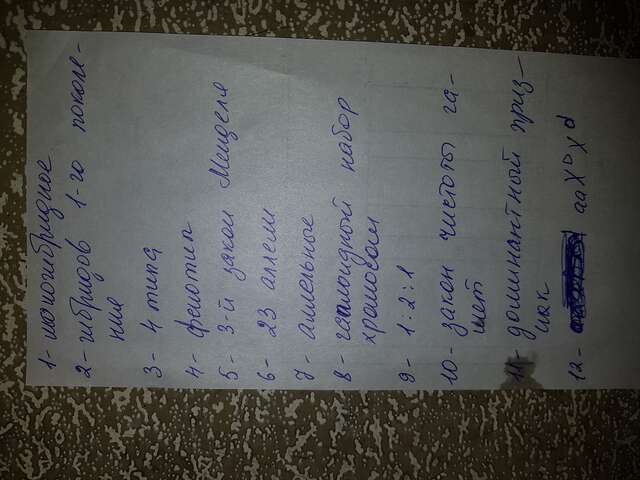 1- моногибридное
2- гибридов 1-го поколе-
ния
3- 4 типа
4- фенотип
5- 3-й закон Менделя
6- 23 аллели
7- аллельные
8- гаплоидный набор
хромосом
9- 1:2:1
10- закон чистоты га-
мет
11- доминантный приз-
нак
12- aaXᴰXᵈ